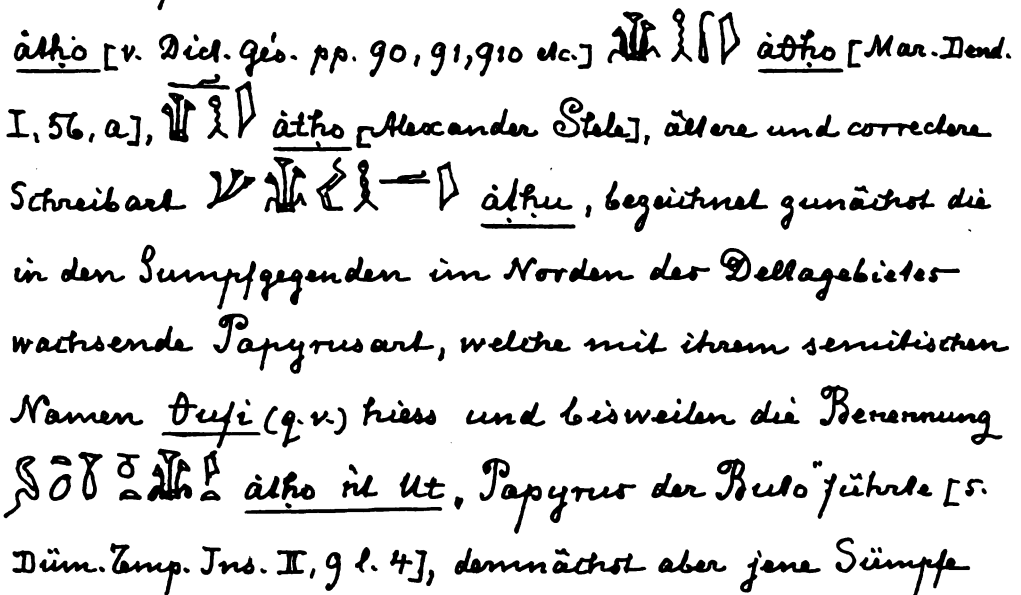 ȧtḥo [v. Dict. géo. pp. 90, 91, 910 etc.] ȧθḥo [Mar. Dend.
I, 56, a], ȧtḥo [Alexander Stele], ältere und correctere
Schreibart ȧtḥu, bezeichnet zunächst die
in den Sumpfgegenden im Norden des Deltagebietes
wachsende Papyrusart, welche mit ihrem semitischen
Namen θufi (q.v.) hiess und bisweilen die Benennung
ȧtḥo nt Ut „Papyrus der Buto" führte [s.
Düm. Temp. Ins. II, 9 l. 4], demnächst aber jene Sümpfe